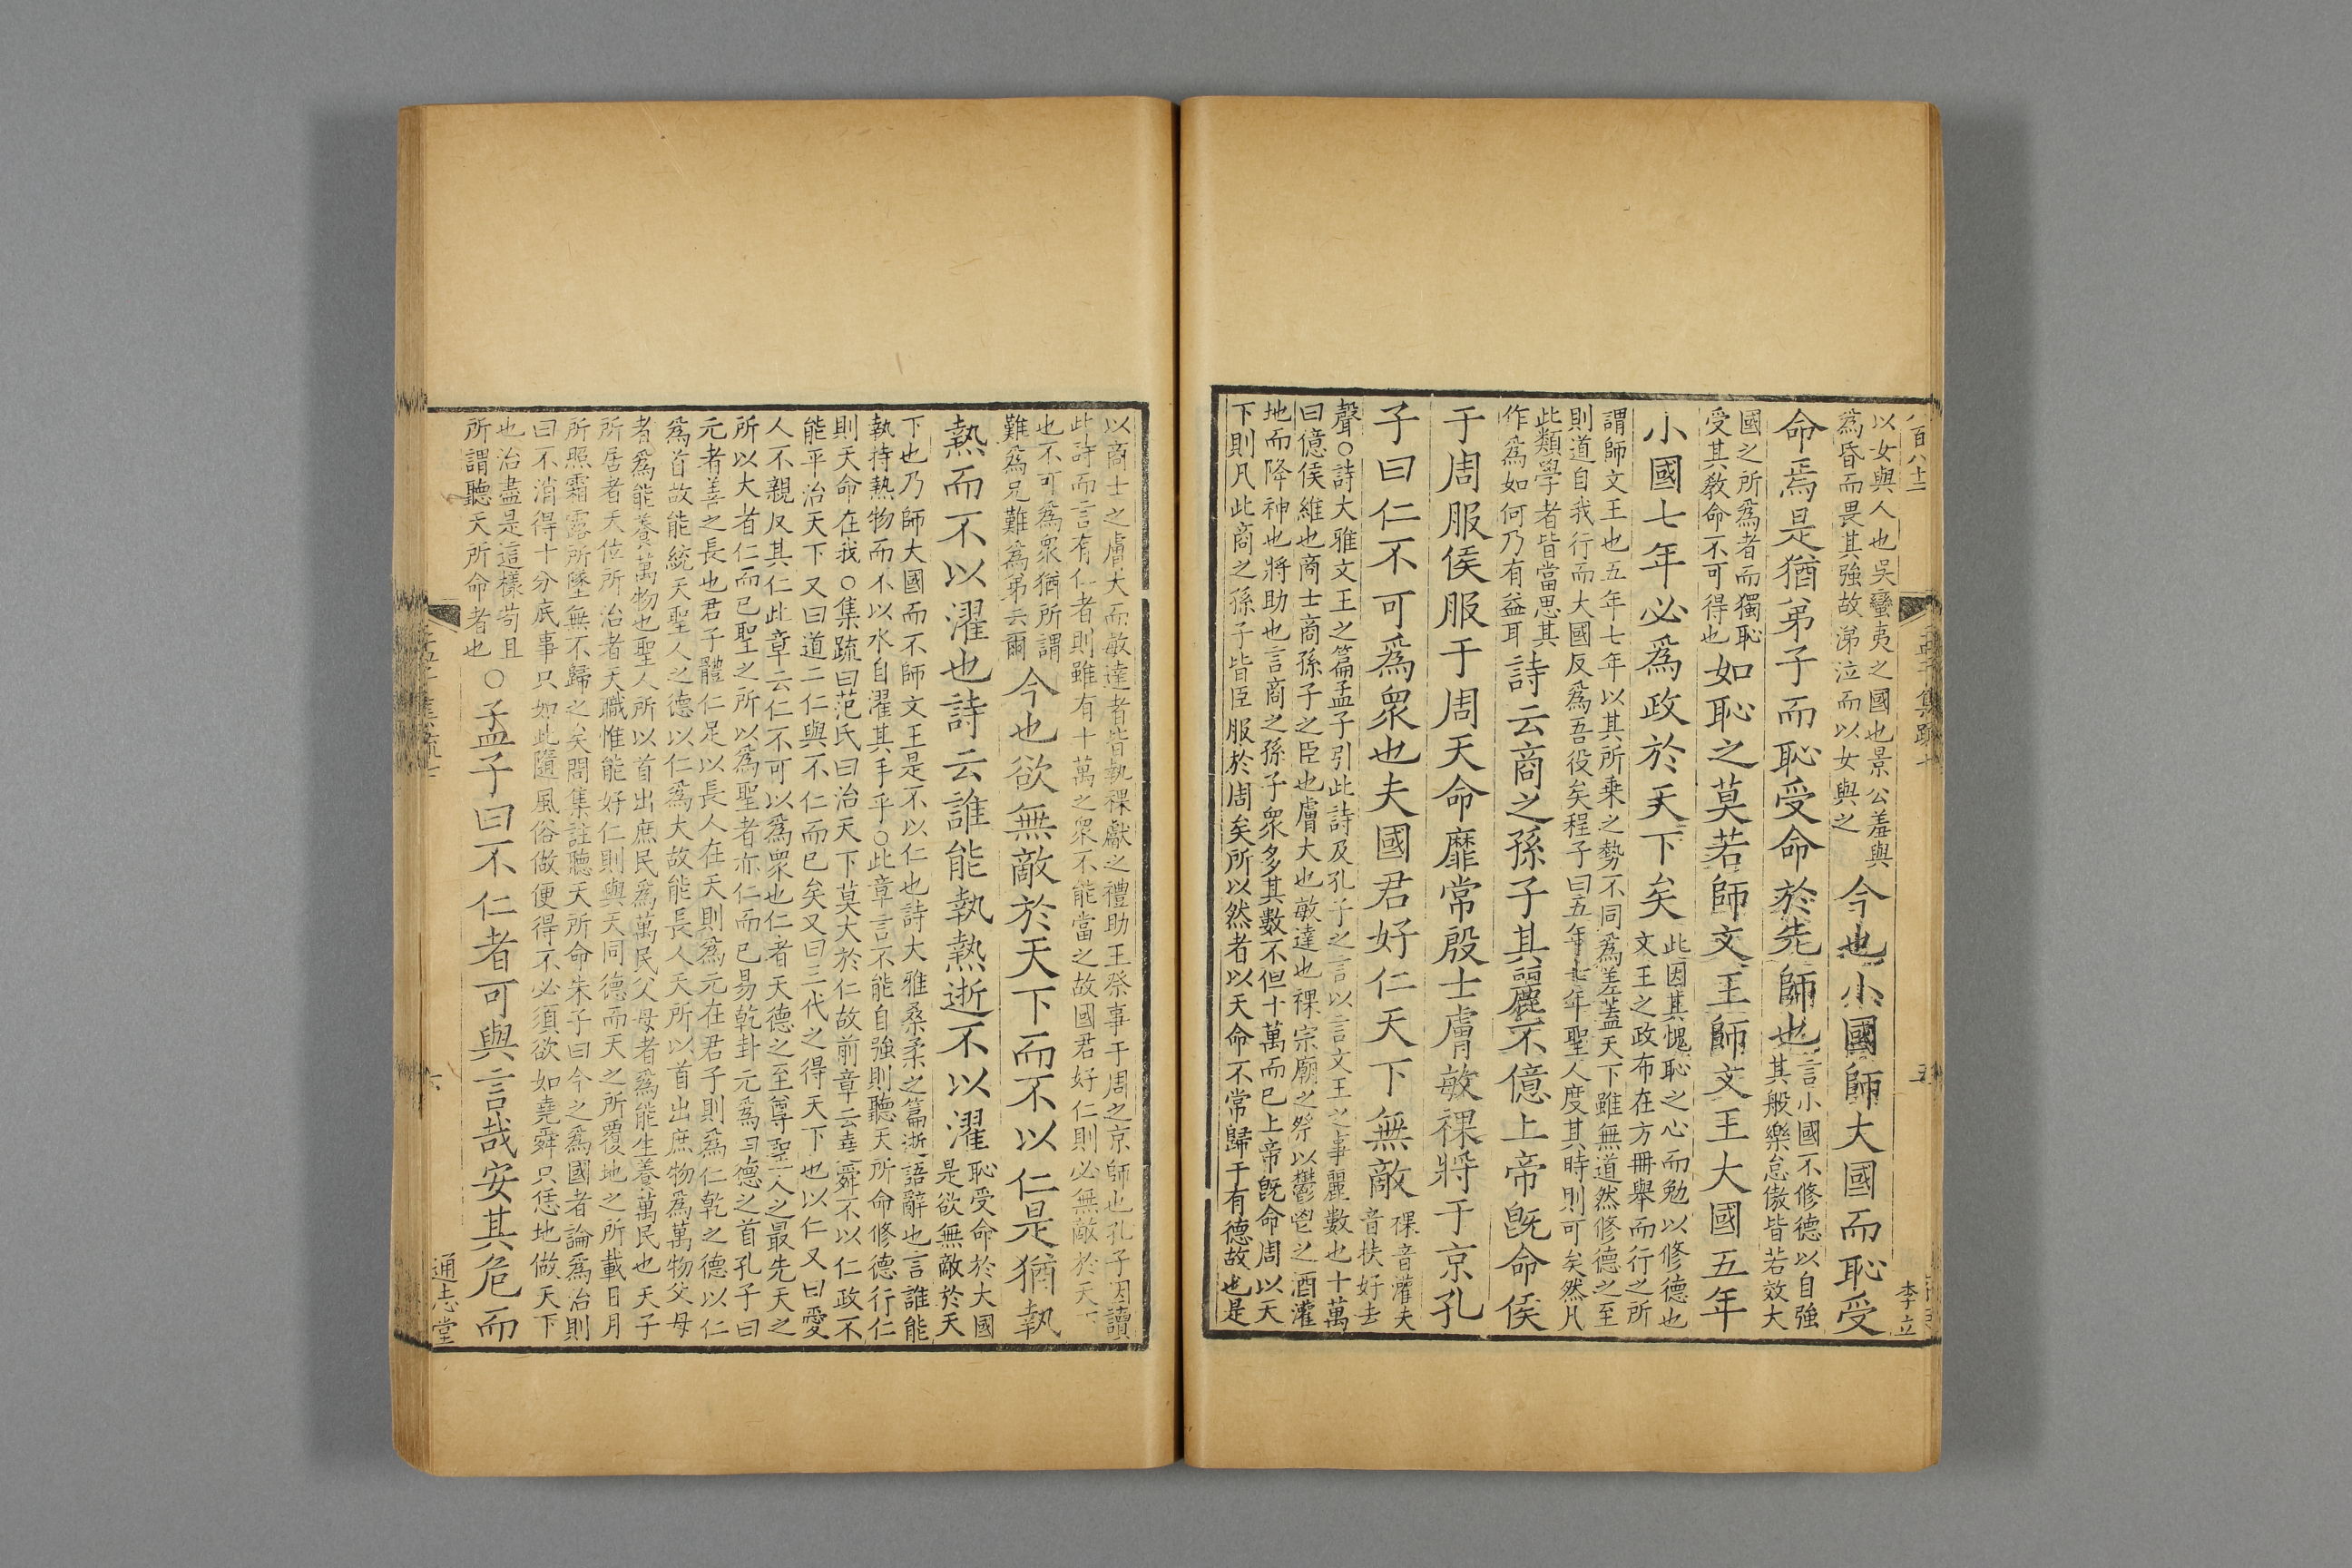 八百八十二
李立
以女與人也吳蠻夷之國也景公羞與
爲昏而畏其強故涕泣而以女與之
今也小國師大國而恥受
命焉是猶弟子而恥受命於先師也
言小國不修德以自強
其般樂怠傲皆若效大
國之所爲者而獨恥
受其敎命不可得也
如恥之莫若師文王師文王大國五年
小國七年必爲政於天下矣
此因其愧恥之心而勉以修德也
文王之政布在方冊舉而行之所
謂師文王也五年七年以其所乗之勢不同爲差蓋天下雖無道然修德之至
則道自我行而大國反爲吾役矣程子曰五年七年聖人度其時則可矣然凡
此類學者皆當思其
作爲如何乃有益耳
詩云商之孫子其麗不億上帝旣命侯
于周服侯服于周天命靡常殷士膚敏祼將于京孔
子曰仁不可爲衆也夫國君好仁天下無敵
祼音灌夫
音扶好去
聲○詩大雅文王之篇孟子引此詩及孔子之言以言文王之事麗數也十萬
曰億侯維也商士商孫子之臣也膚大也敏達也祼宗廟之祭以鬱鬯之酒灌
地而降神也將助也言商之孫子衆多其數不但十萬而已上帝旣命周以天
下則凡此商之孫子皆臣服於周矣所以然者以天命不常歸于有德故也是
以商士之膚大而敏達者皆執祼獻之禮助王祭事于周之京師也孔子因讀
此詩而言有仁者則雖有十萬之衆不能當之故國君好仁則必無敵於天下
也不可爲衆猶所謂
難爲兄難爲弟云爾
今也欲無敵於天下而不以仁是猶執
熱而不以濯也詩云誰能執熱逝不以濯
恥受命於大國
是欲無敵於天
下也乃師大國而不師文王是不以仁也詩大雅桑柔之篇逝語辭也言誰能
執持熱物而不以水自濯其手乎○此章言不能自強則聽天所命修德行仁
則天命在我○集疏曰范氏曰治天下莫大於仁故前章云堯舜不以仁政不
能平治天下又曰道二仁與不仁而已矣又曰三代之得天下也以仁又曰愛
人不親反其仁此章云仁不可以爲衆也仁者天德之至尊聖人之最先天之
所以大者仁而已聖之所以爲聖者亦仁而已易乾卦元爲四德之首孔子曰
元者善之長也君子體仁足以長人在天則爲元在君子則爲仁乾之德以仁
爲首故能統天聖人之德以仁爲大故能長人天所以首出庶物爲萬物父母
者爲能養萬物也聖人所以首出庶民爲萬民父母者爲能生養萬民也天子
所居者天位所治者天職惟能好仁則與天同德而天之所覆地之所載日月
所照霜露所墜無不歸之矣問集註聽天所命朱子曰今之爲國者論爲治則
曰不消得十分底事只如此隨風俗做便得不必須欲如堯舜只恁地做天下
也治盡是這樣苟且
所謂聽天所命者也
○孟子曰不仁者可與言哉安其危而
六
通志堂